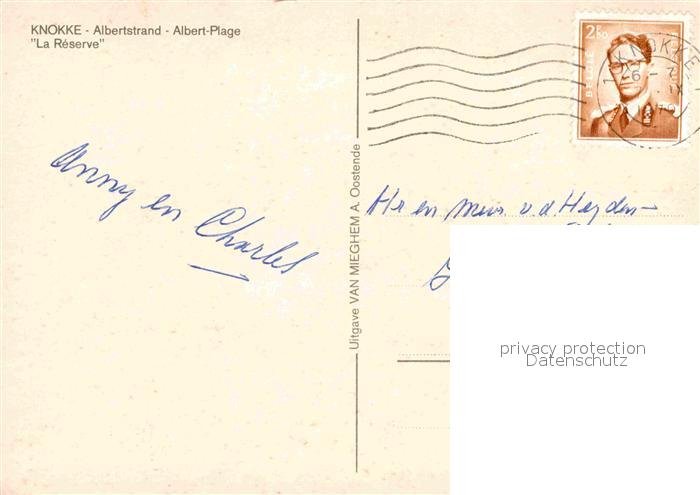 KNOKKE - Albertstrand - Albert-Plage
"La Réserve"
2.50
KNOKKE
6 - 7
Anny en Charles
Hr en Mevr v.d Heyden-
Uitgave VAN MIEGHEM A. Oostende
privacy protection
Datenschutz